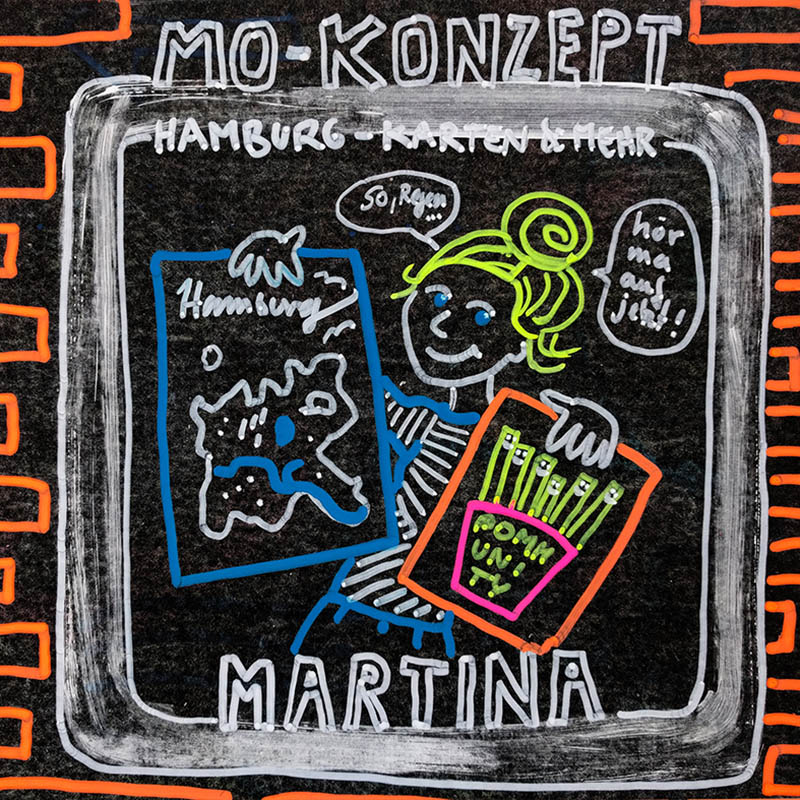 MO-KONZEPT
HAMBURG - KARTEN & MEHR
So, Regen
...
hör
ma
auf
jetzt!
Hamburg
POMM
UN!
TY
MARTINA